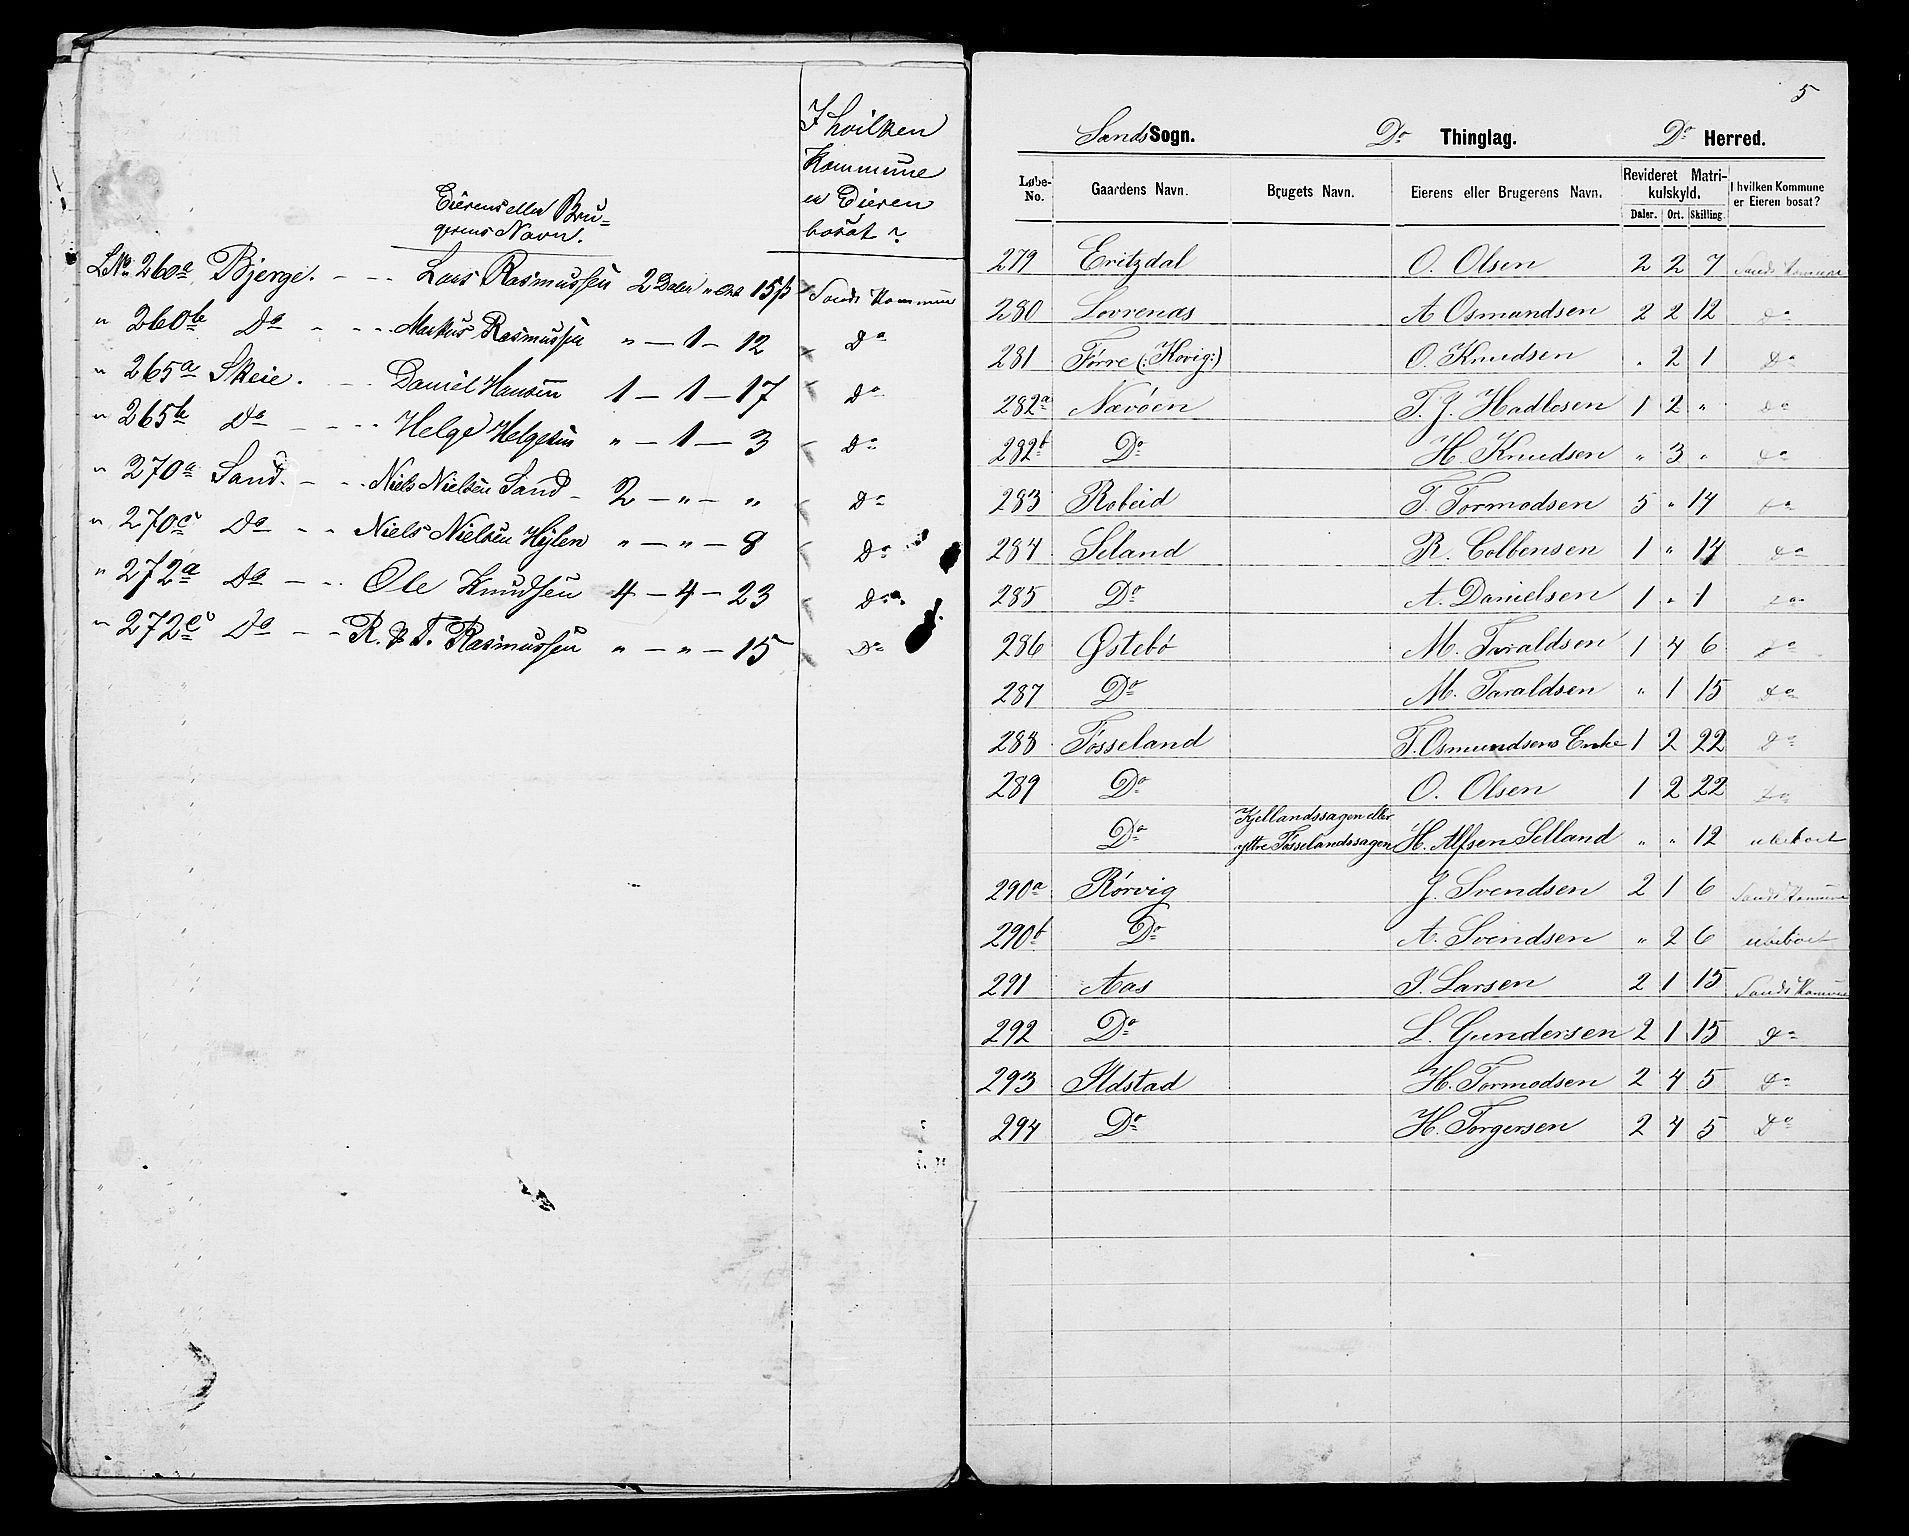 I hvilken
Kommune
er Eieren
bosat?
Eierens eller Bru-
gerens Navn.
LNo 260a Bjerge. - - Lars Rasmussen 2 Daler " Ort 15 ß Sands Kommune
" 260b Do - - - Markus Rasmussen " - 1 - 12 Do
" 265a Skeie. - - Daniel Hansen 1 - 1 - 17 Do
" 265b Do - - - - Helge Helgesen " - 1 - 3 Do
" 270a Sand. - - Niels Nielsen Sand - 2 - " - " Do
" 270c Do - - Niels Nielsen Hylen " - " - 8 Do
" 272a Do - - Ole Knudsen 4 - 4 - 23 Do
" 272c Do - - R. & T. Rasmussen " - " - 15 Do
5
Sands Sogn. Do Thinglag. Do Herred.
Løbe-No. Gaardens Navn. Brugets Navn. Eierens eller Brugerens Navn. Revideret Matrikulskyld. I hvilken Kommune er Eieren bosat?
Daler. Ort. Skilling.
279 Eritzdal O. Olsen 2 2 7 Sands Kommune
280 Lovrenæs A Osmundsen 2 2 12 Do
281 Førre (:Kovig:) O. Knudsen " 2 1 Do
282a Navøen T. J. Hadlesen 1 2 " Do
282b Do H. Knudsen " 3 " Do
283 Robeid T. Tormodsen 5 " 14 Do
284 Seland R. Colbensen 1 " 14 Do
285 Do A. Danielsen 1 " 1 Do
286 Østebø M. Taraldsen 1 4 6 Do
287 Do M. Taraldsen " 1 15 Do
288 Fosseland T. Osmundsens Enke 1 2 22 Do
289 Do O. Olsen 1 2 22 Do
Do Kjellandssagen eller
yttre Fosselandssagen H. Alfsen Selland " " 12 ubeboet
290a Rørvig J. Svendsen 2 1 6 Sands Kommune
290b Do A. Svendsen " 2 6 ubeboet
291 Aas S. Larsen 2 1 15 Sands Kommune
292 Do L. Gundersen 2 1 15 Do
293 Ildstad H. Tormodsen 2 4 5 Do
294 Do H. Torgersen 2 4 5 Do